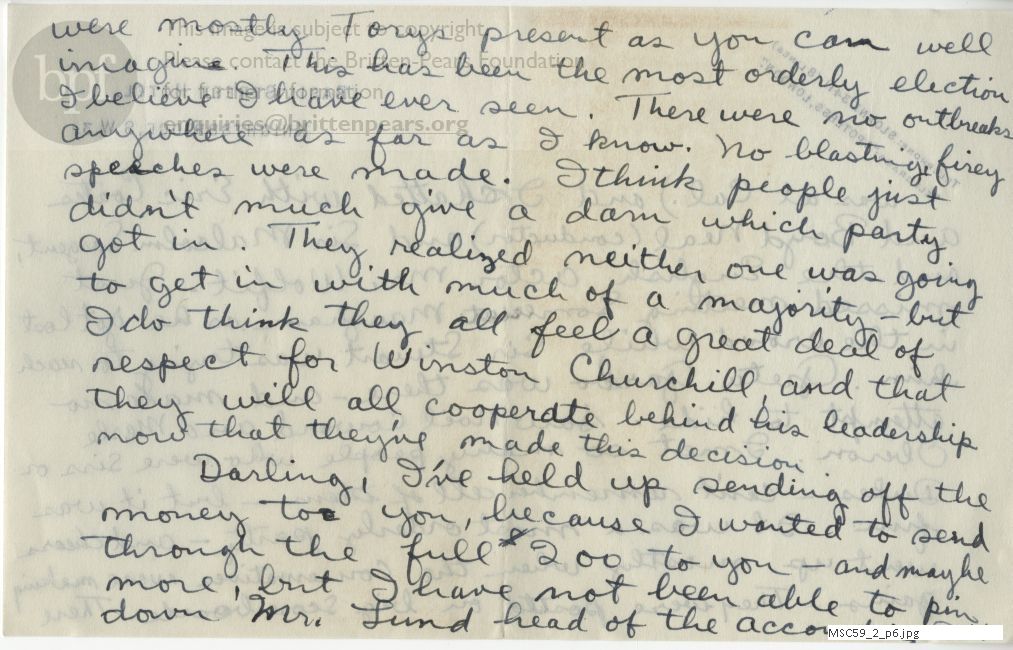 were mostly Torys present as you can well
imagine. This has been the most orderly election
I believe I have ever seen. There were no outbreaks
anywhere as far as I know. No blasting, firey
speeches were made. I think people just
didn't much give a dam which party
got in. They realized neither one was going
to get in with much of a majority - but
I do think they all feel a great deal of
respect for Winston Churchill, and that
they will all cooperate behind his leadership
now that they've made this decision.
Darling, I've held up sending off the
money to you, because I wanted to send
through the full $200 to you - and maybe
more, but I have not been able to pin
down Mr. Lund head of the
This image is subject to copyright.
Please contact the Britten-Pears Foundation
for further information
enquiries@brittenpears.org
bpf
MSC59_2_p6.jpg